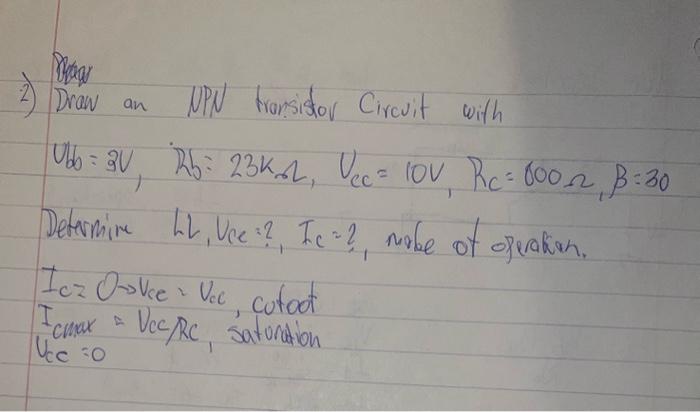 2) Draw an NPN transistor Circuit with
Vbb = 3V, Rb = 23KΩ, Vcc = 10V, Rc = 600Ω, β = 30
Determine LL, Vce = ?, Ic = ?, mobe of operation.
Ic = 0 → Vce = Vcc, cutoot
Icmax = Vcc/Rc, saturation
Vcc = 0